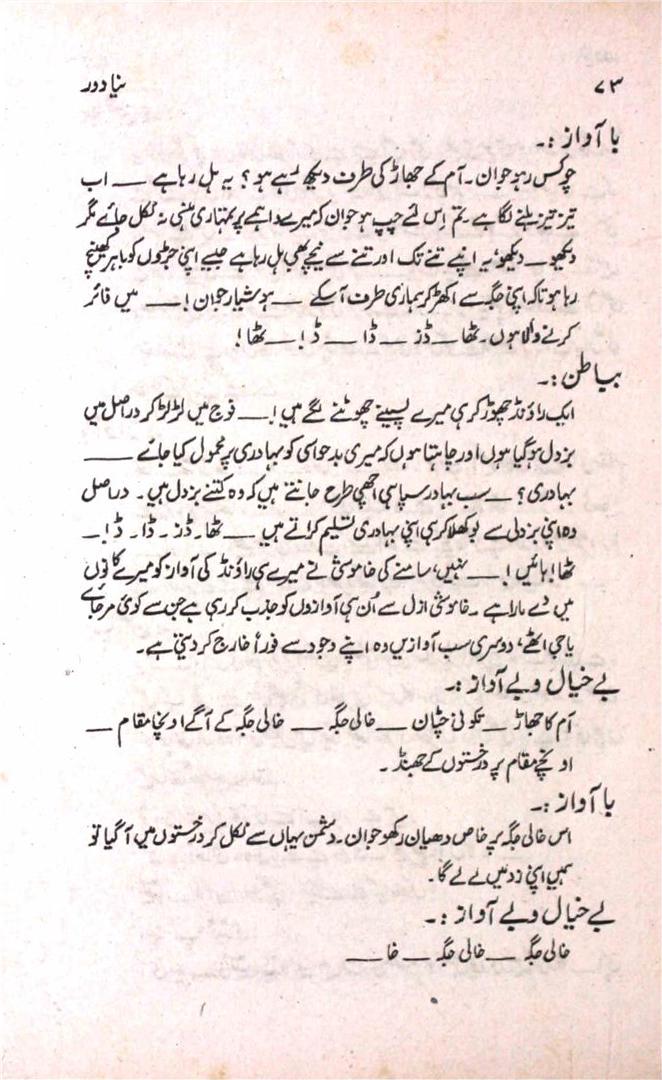 ۷۳ نیا دور
با آواز :۔
چوکس رہو جوان ۔ آم کے جھاڑ کی طرف دیکھ رہے ہو ؟ یہ ہل رہا ہے ــــ اب
تیز تیز ہلنے لگا ہے ۔ تم اِس لئے چپ ہو جوان کہ میرے واہمے پر تمہاری ہنسی نہ نکل جائے مگر
دیکھو ــ دیکھو، یہ اپنے تنے تک اور تنے سے نیچے بھی ہل رہا ہے جیسے اپنی جڑوں کو باہر کھینچ
رہا ہو تاکہ اپنی جگہ سے اکھڑ کر ہماری طرف آسکے ــــ ہوشیار جوان ! ــــ میں فائر
کرنے والا ہوں ۔ ٹھا ــ ڈز ــــ ڈا ــــ ڈ ! ــــ ٹھا !
بباطن :۔
ایک راؤنڈ چھوڑ کر ہی میرے پسینے چھوٹنے لگے ہیں ! ــــ فوج میں لڑ لڑ کر دراصل میں
بزدل ہو گیا ہوں اور چاہتا ہوں کہ میری بدحواسی کو بہادری پر محمول کیا جائے ــــ
بہادری ؟ ــــ سب بہادر سپاہی اچھی طرح جانتے ہیں کہ وہ کتنے بزدل ہیں ۔ دراصل
وہ اپنی بزدلی سے بوکھلا کر ہی اپنی بہادری تسلیم کراتے ہیں ــــ ٹھا ۔ ڈز ۔ ڈا ۔ ڈ ! ــ
ٹھا ! ہائیں ! ــــ نہیں، سامنے کی خاموشی نے میرے ہی راؤنڈ کی آواز کو میرے کانوں
میں دے مارا ہے ۔ خاموشی ازل سے اُن ہی آوازوں کو جذب کر رہی ہے جن سے کوئی مر جائے
یا جی اٹھے، دوسری سب آوازیں وہ اپنے وجود سے فوراً خارج کر دیتی ہے ۔
بے خیال و بے آواز :۔
آم کا جھاڑ ــــ تکونی چٹان ــــ خالی جگہ ــــ خالی جگہ کے آگے اونچا مقام ــــ
اونچے مقام پر درختوں کے جھنڈ ۔
با آواز :۔
اس خالی جگہ پر خاص دھیان رکھو جوان ۔ دشمن یہاں سے نکل کر درختوں میں آگیا تو
ہمیں اپنی زد میں لے لے گا ۔
بے خیال و بے آواز :۔
خالی جگہ ــــ خالی جگہ ــــ خا ــــ